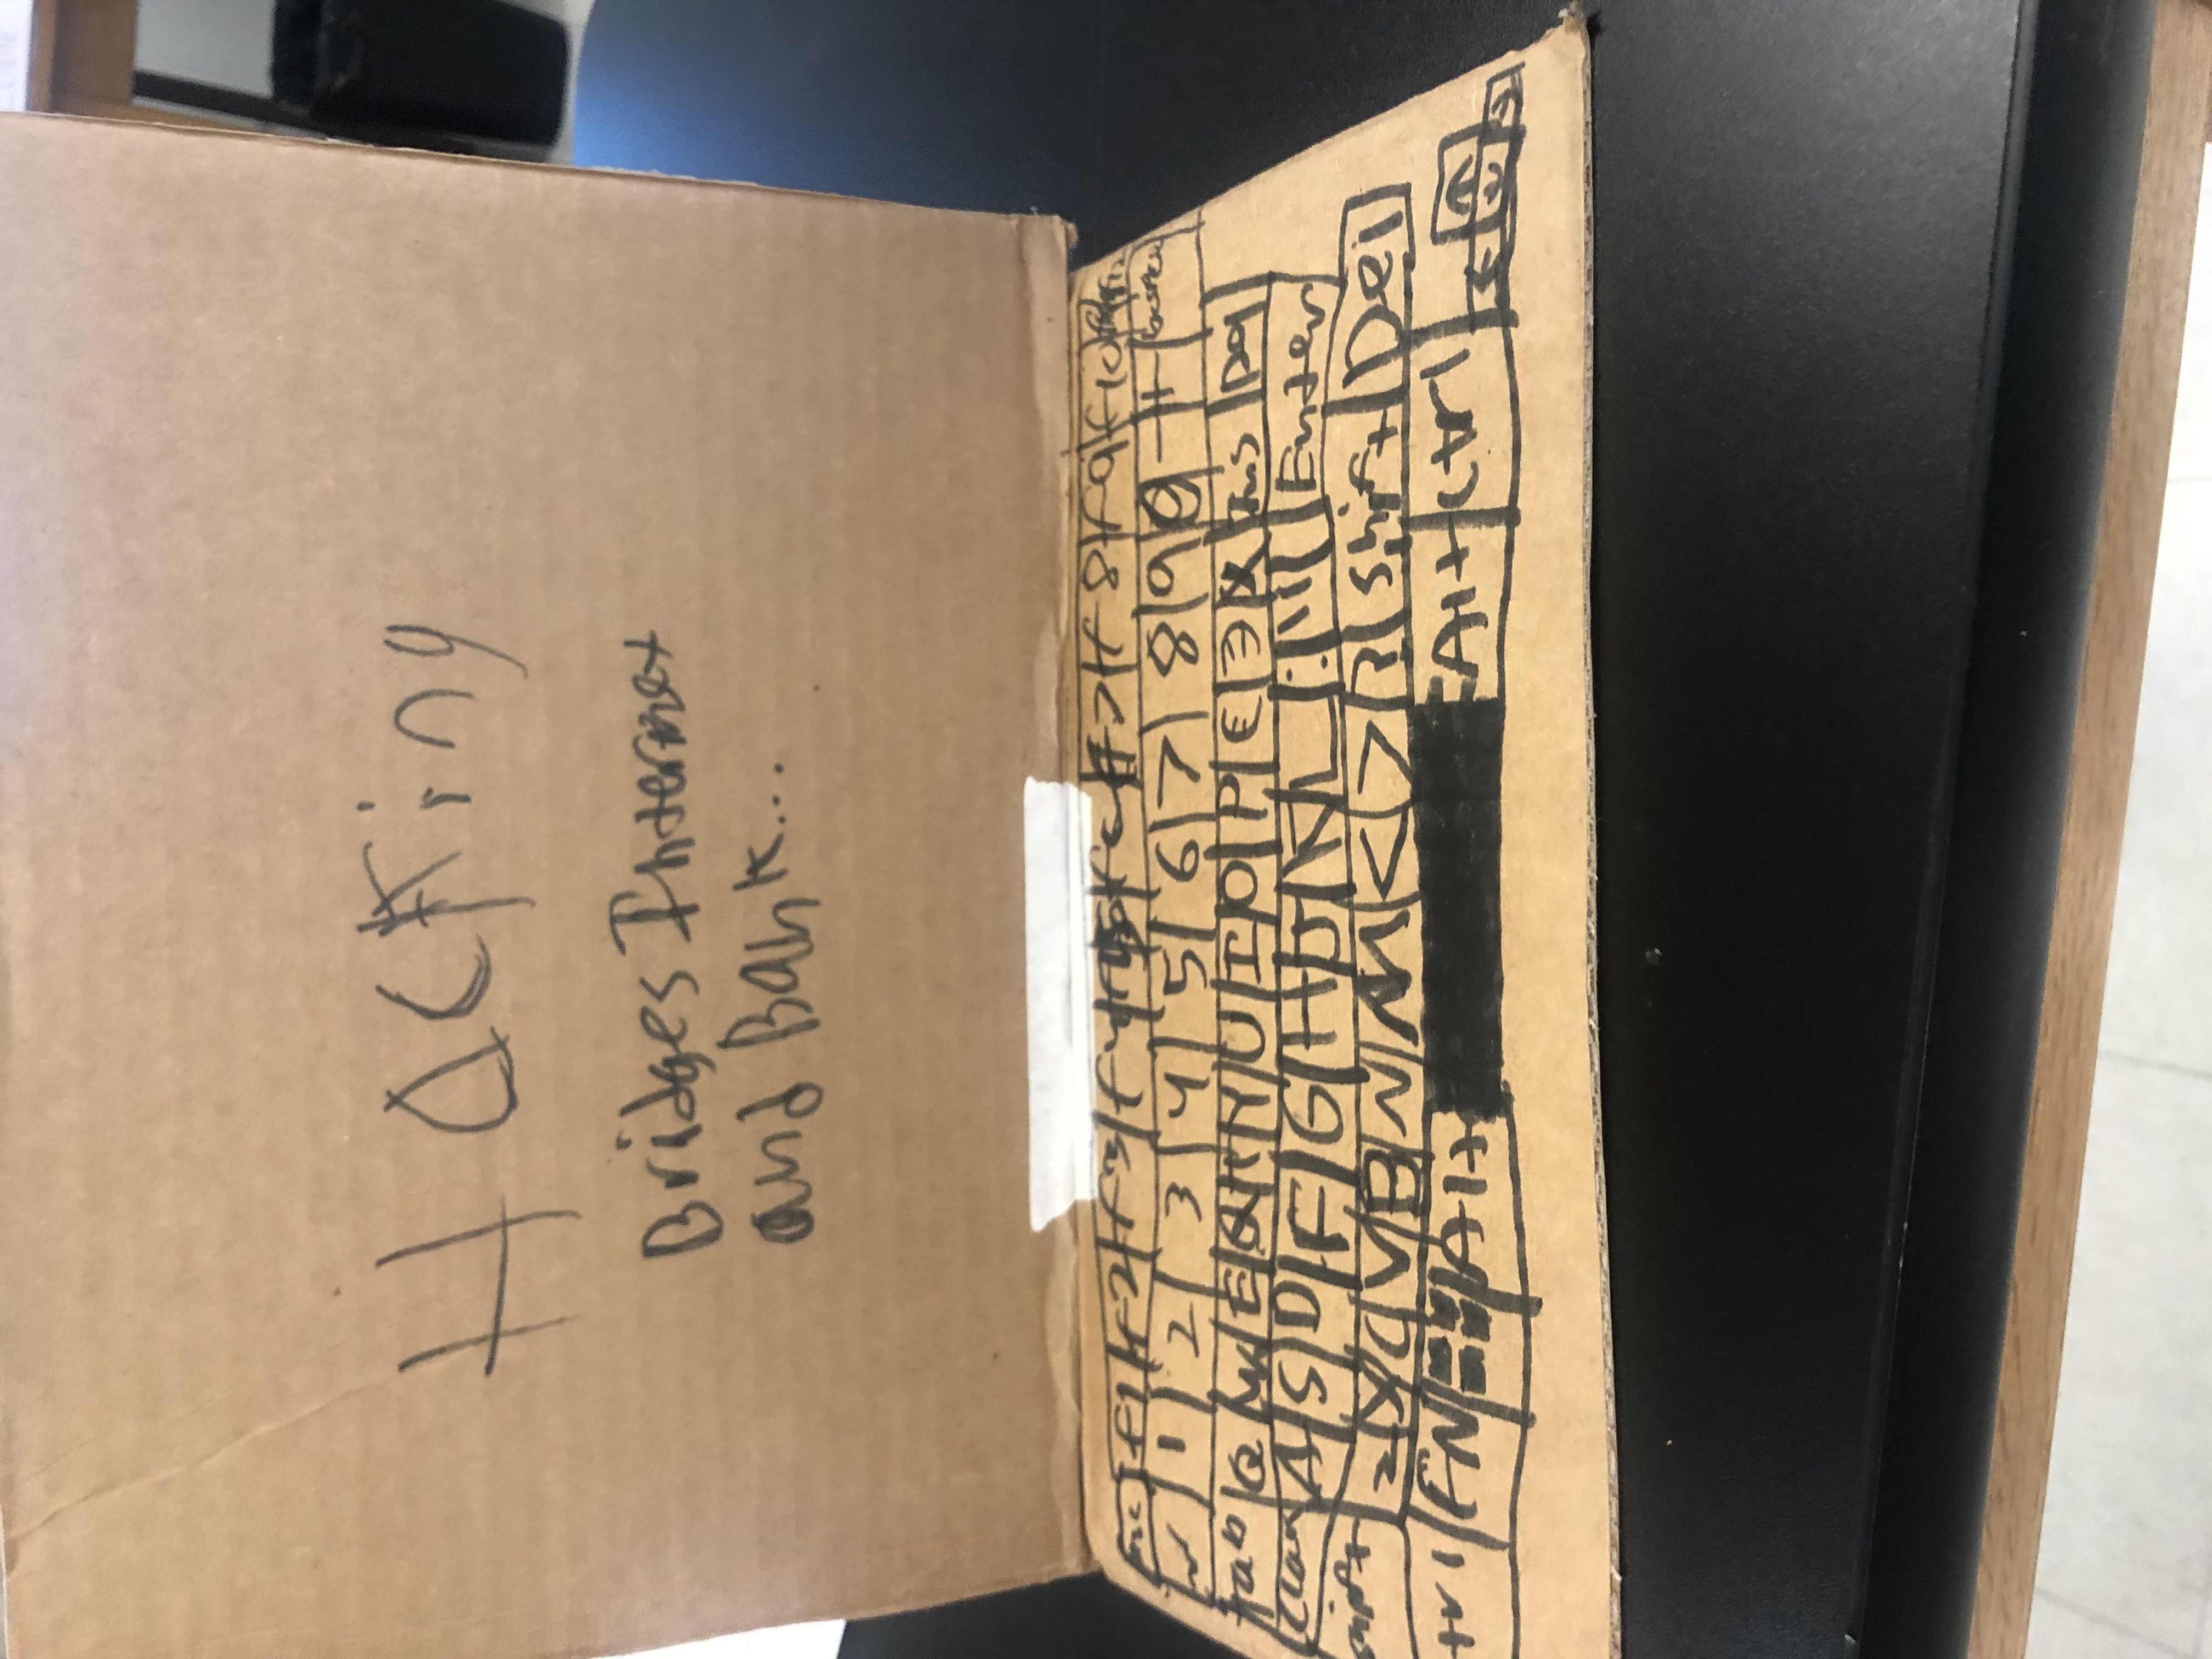 Hacking
Bridges Internet
and Bank...
f1 f2 f3 f4 f5 f6 f7 f8 f9 f10
1 2 3 4 5 6 7 8 9 0 - +
tab Q W E Y U I O P Ins
A S D F G H J K L : " Enter
shift Z X C V B N M < > ? Shift Del
ctrl FN Alt Alt ctrl